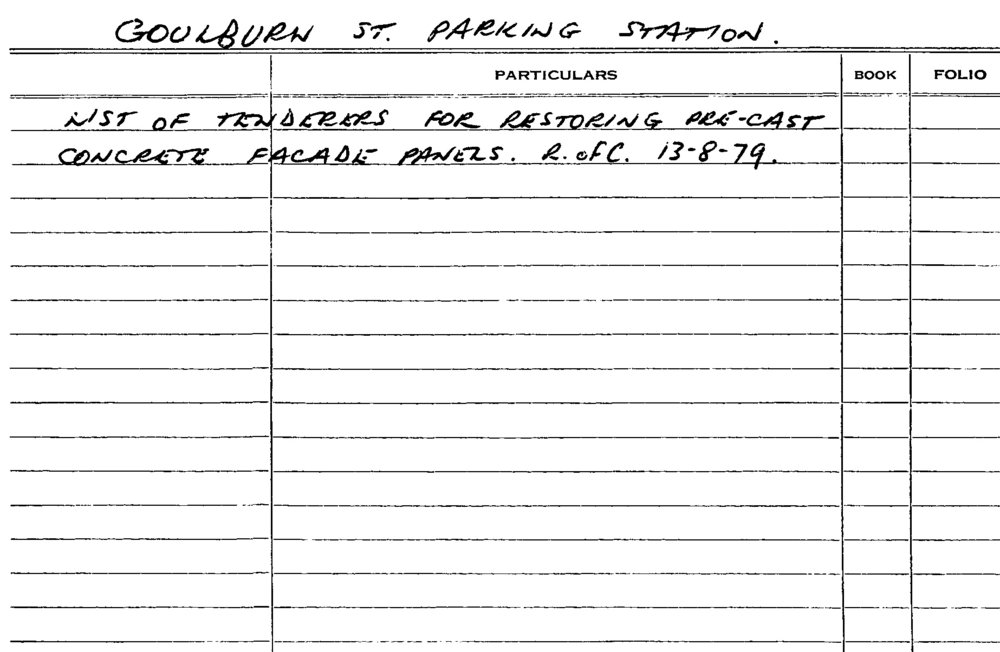 GOULBURN ST. PARKING STATION.
PARTICULARS BOOK FOLIO
LIST OF TENDERERS FOR RESTORING PRE-CAST
CONCRETE FACADE PANELS. R. of C. 13-8-79.